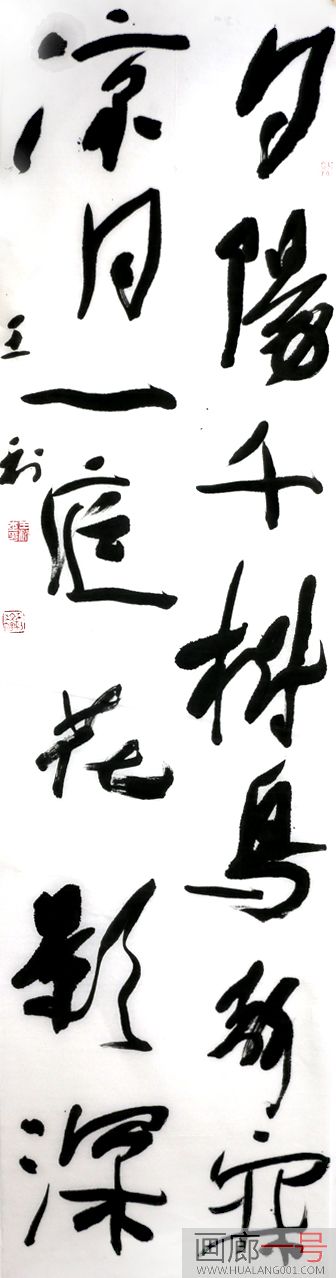 夕陽千樹鳥寂
凉月一庭花影深
王利
画廊一号
WWW.HUALANG001.COM